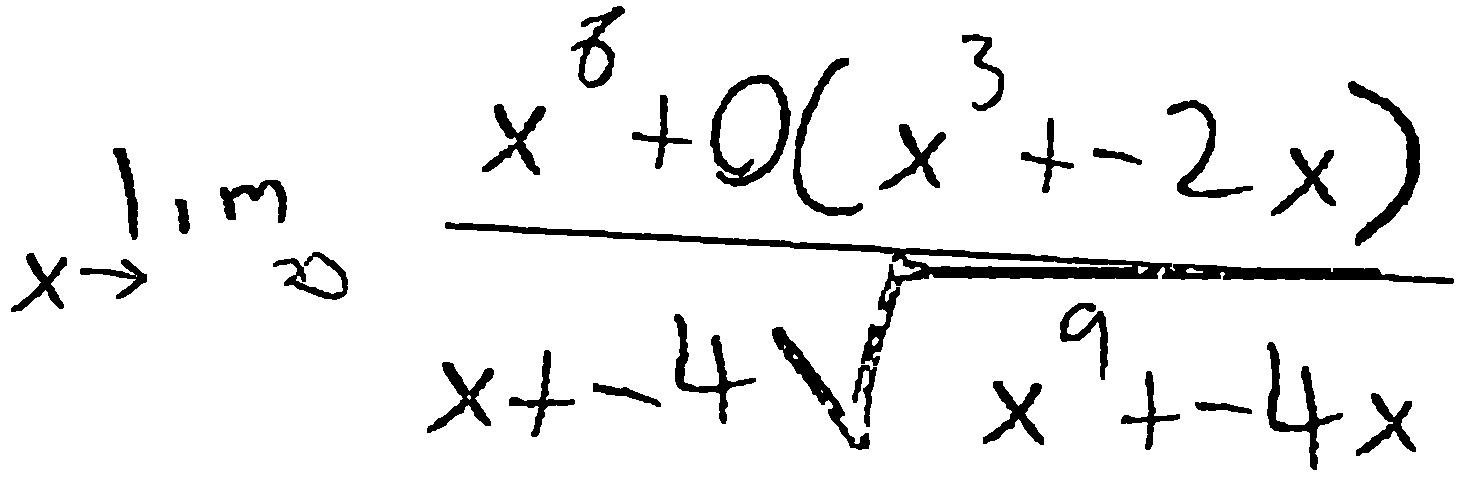 \lim_{x \to \infty} \frac{x^{8} + 0(x^{3} + -2x)}{x + -4\sqrt{x^{9} + -4x}}